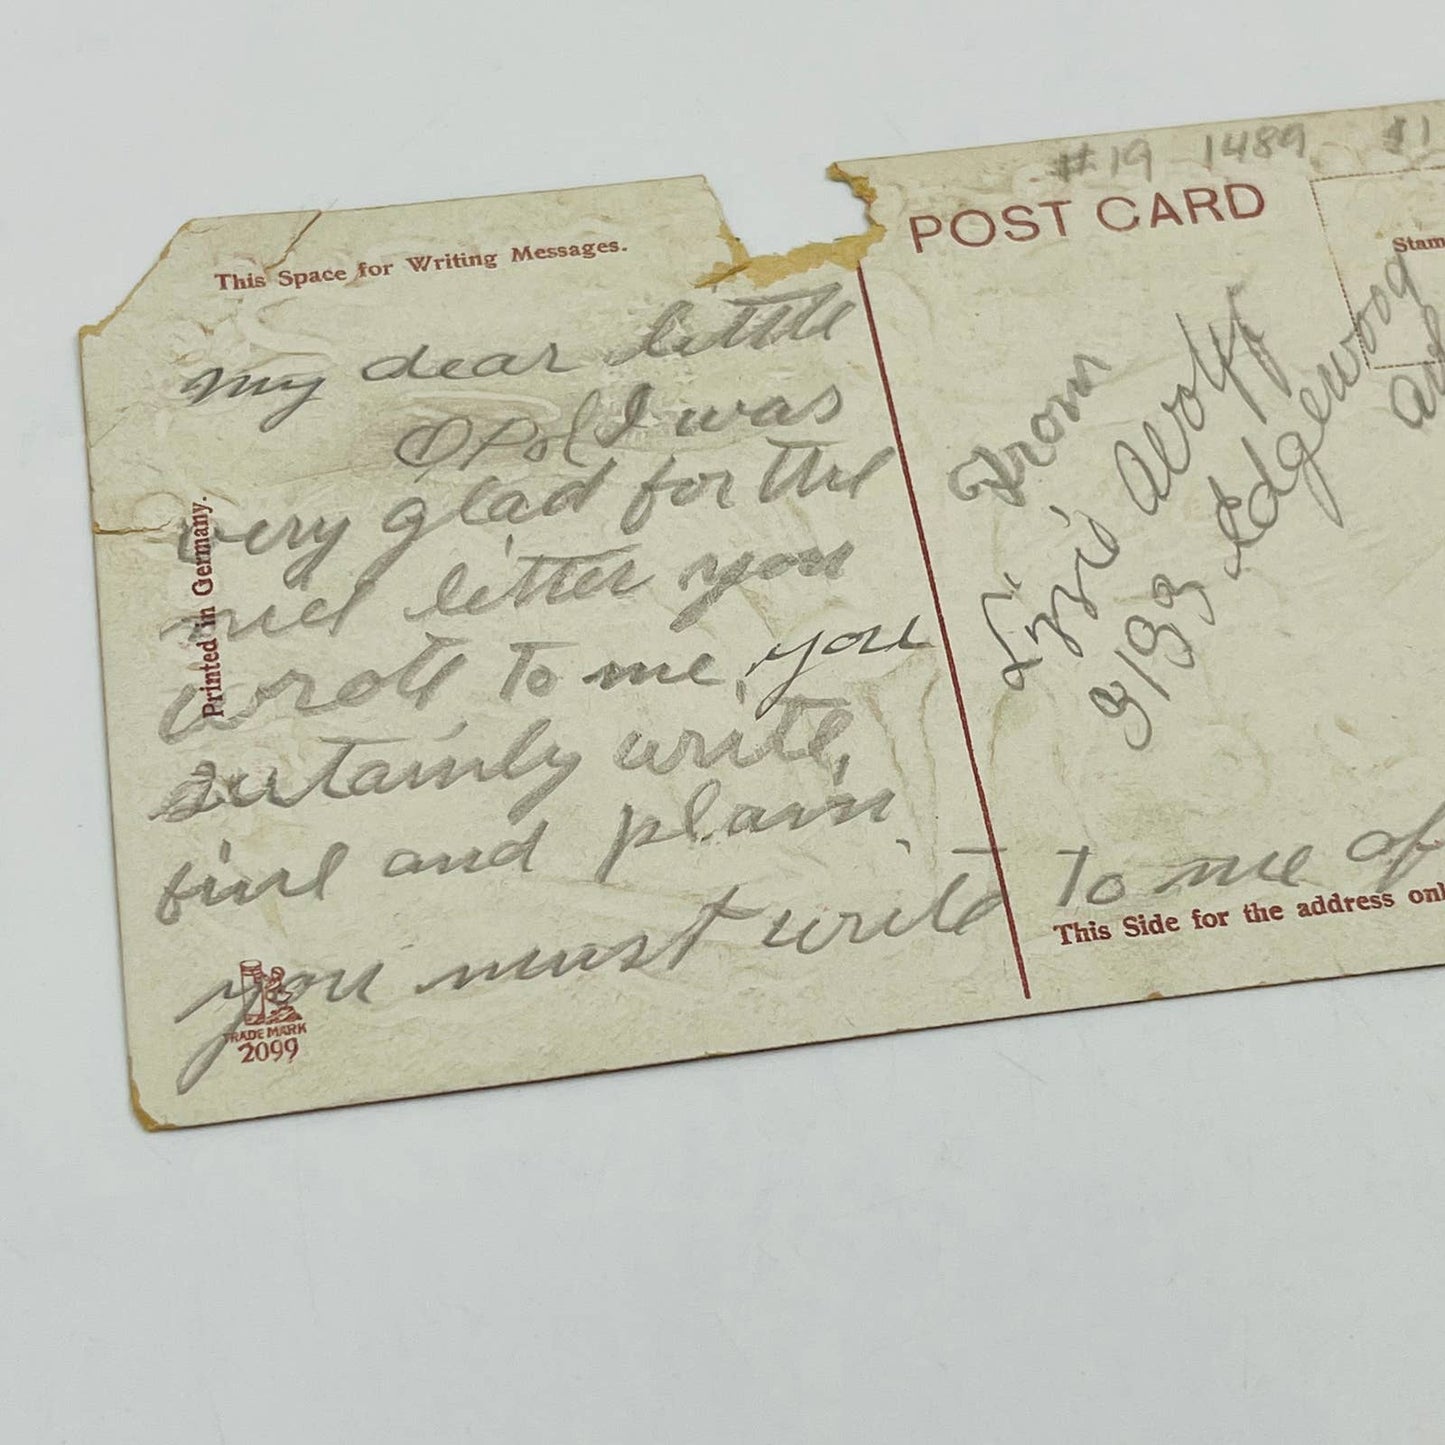 #19 1489 $1
POST CARD
Stam
This Space for Writing Messages.
My dear little
Opol I was
very glad for the
nice letter you
wrote to me, you
certainly write,
fine and plain
you must write to me of
From
Lizzie Wolff
3133 Edgewood
Printed in Germany.
TRADE MARK
2099
This Side for the address onl